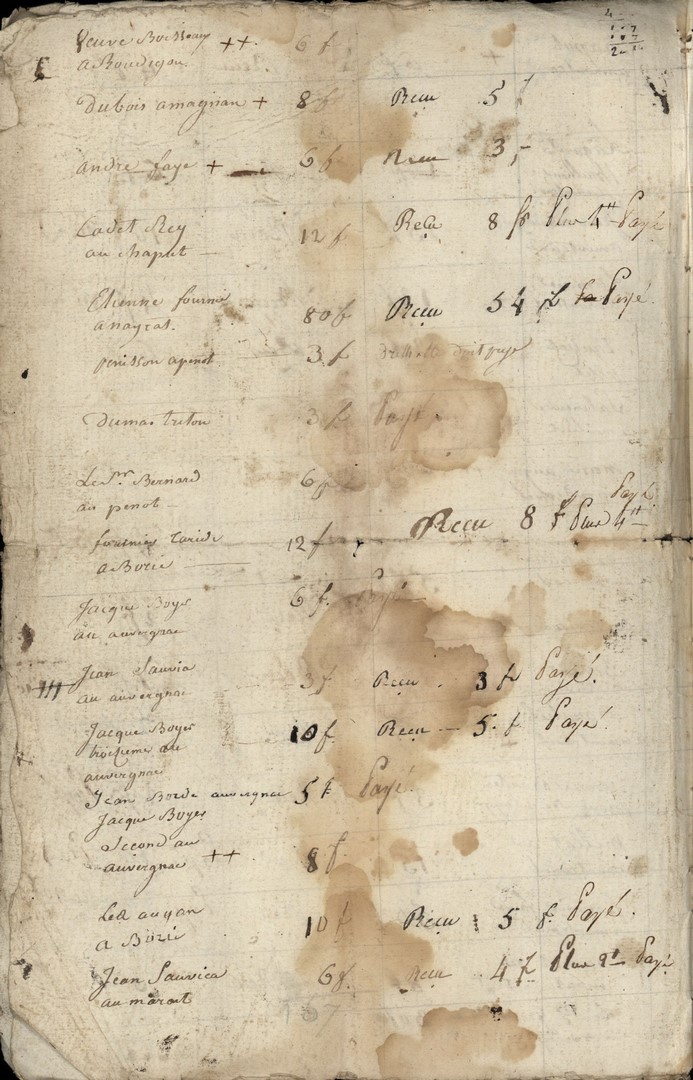 Veuve Boisseau ++ 6 f
a Boudigou.
Dubois amagnan + 8 f Recu 5 f
andre faye + 6 f Recu 3,-
Cadet Rey 12 f Recu 8 f Plus 4 Payé
au chaput
Etienne fournie 80 f Recu 54 f Payé
a nayrat.
penisson apenot 3 f doit paye
Dumas triton 3 f Payé
Le Sr Bernard 6 f
au penot
Payé
fournier taride 12 f Recu 8 f Plus 4
a Borie
Jacque Boyer 6 f. Payé
au auvergnac
Jean Sauvia 3 f Recu 3 f Payé.
au auvergnac
Jacque Boyer 10 f Recu 5 f Payé
troisieme au
auvergnac
Jean Borde auvergnac 5 f Payé
Jacque Boyer
Second au
auvergnac ++ 8 f
Lea augan 10 f Recu 5 f. Payé.
a Borie
Jean Sauvica 6 f. Recu 4 f Plus 2 Payé
au marait
167